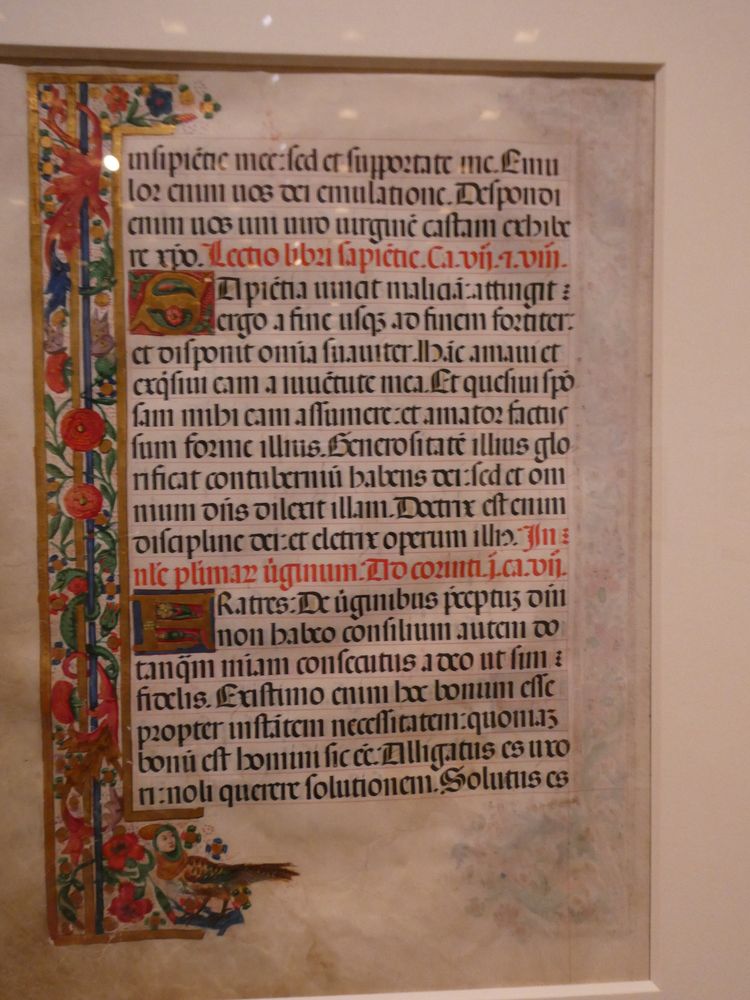 insipiẽtie mee: sed et supportate me. Emu
lor enim uos dei emulatione. Despondi
enim uos uni uiro uirginẽ castam exhibe
re xp̃o. Lectio libri sapiẽtie. Ca. vij. ⁊. viii.
SApiẽtia uincit maliciã: attingit:
ergo a fine usqꝫ ad finem fortiter:
et disponit om̃ia suauiter. Hãc amaui et
exq̃siui eam a iuuẽtute mea. Et quesiui spõ
sam mihi eam assumere: et amator factus
sum forme illius. Generositatẽ illius glo
rificat contuberniũ habens dei: sed et om
nium dñs dilexit illam. Doctrix est enim
discipline dei: et eletrix operum illiꝰ. In:
nl̃e plimaꝝ ũginum. Ad corinti. j. ca. vij.
FRatres: De ũginibus p̃ceptuꝫ dñi
non habeo consilium autem do
tanq̃m miam consecutus a deo ut sim:
fidelis. Existimo enim hoc bonum esse
propter instãtem necessitatem: quoniaꝫ
bonũ est homini sic eẽ. Alligatus es uxo
ri: noli querere solutionem. Solutus es